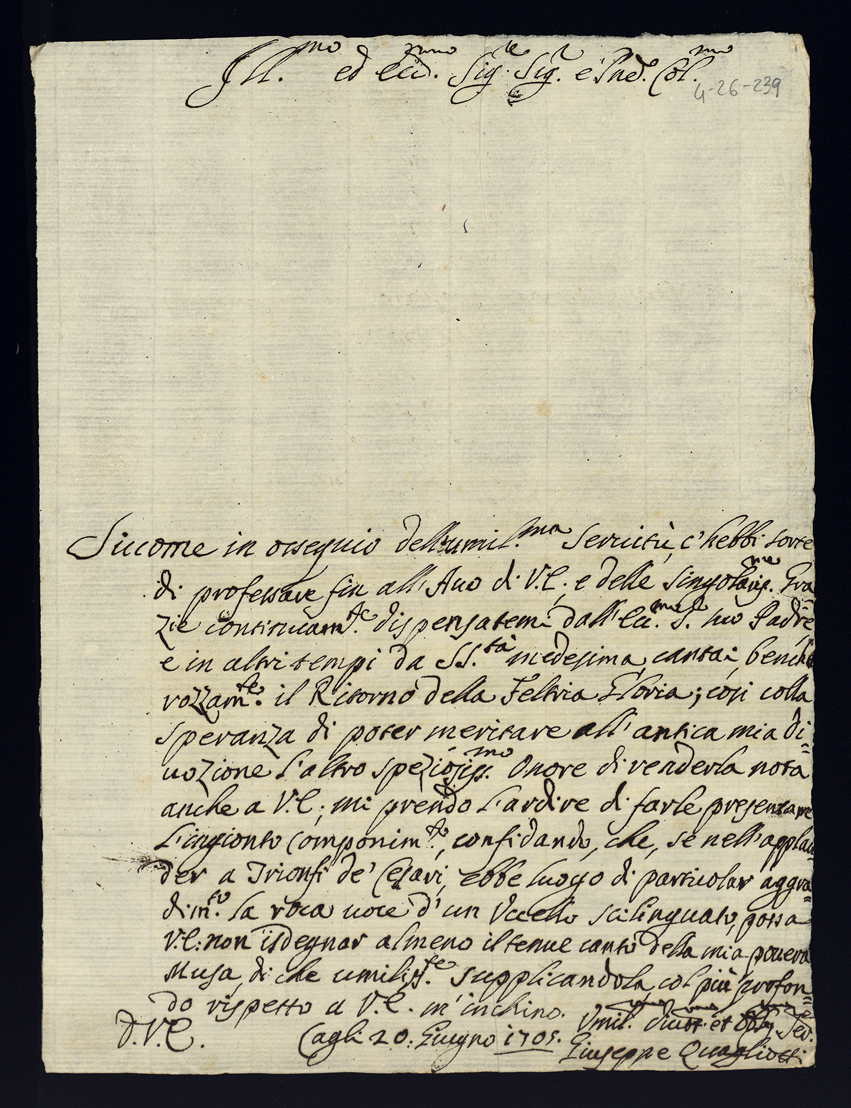 Ill.mo ed Ecc.mo Sig.re Sig.r e Pne. Col.mo
4-26-239
Siccome in ossequio dell'umil.ma Servitù, c'hebbi sorte
di professare fin all'Avo di V.E., e delle singolariss.me Gra
zie continuam.te dispensatemi dall'Ecc.mo S. suo Padre
e in altri tempi da SS.tà medesima, cantai, benche
rozzam.te il Ritorno della Feltria Gloria; così colla
speranza di poter meritare all'antica mia di=
uozione l'altro speziosiss.mo Onore di renderla nota
anche a V.E.; mi prendo l'ardire di farle presentare
l'ingionto Componim.to, confidando, che, se nell'applau
der a Trionfi de' Cesari, ebbe luogo di particolar aggra=
dim.to la roca uoce d'un Vccello scilinguato, possa
V.E. non isdegnar almeno il tenue canto della mia pouera
Musa, di che umiliss.te supplicandola col più profon=
do rispetto a V.E. m'inchino.
D.V.E. Cagli 20. Giugno 1705. Vmil.mo Diuot.mo et Obl.mo Ser.
Giuseppe Quagliotti